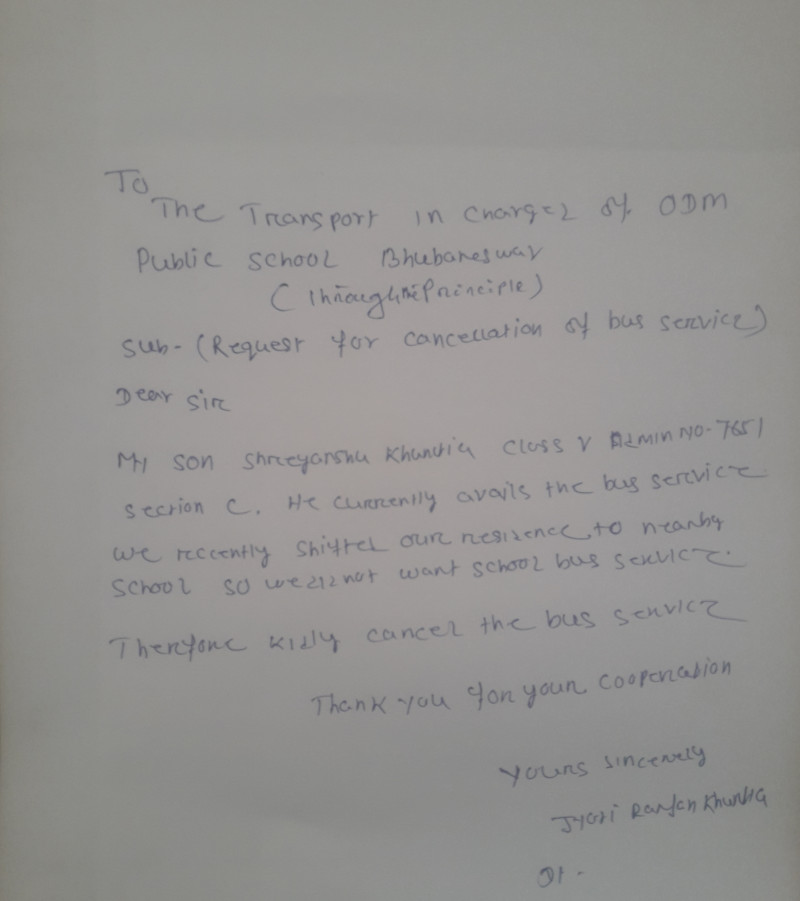 To
The Transport in charge of ODM
Public school Bhubaneswar
(Through the Principle)
Sub- (Request for cancellation of bus service)
Dear sir
My son Shreeyanshu Khuntia class V Admin No- 7651
section C. He currently avails the bus service
we recently shifted our residence to nearby
school so we did not want school bus service.
Therefore kidly cancel the bus service
Thank you for your cooperation
Yours sincerely
Jyoti Ranjan Khuntia
Dt -